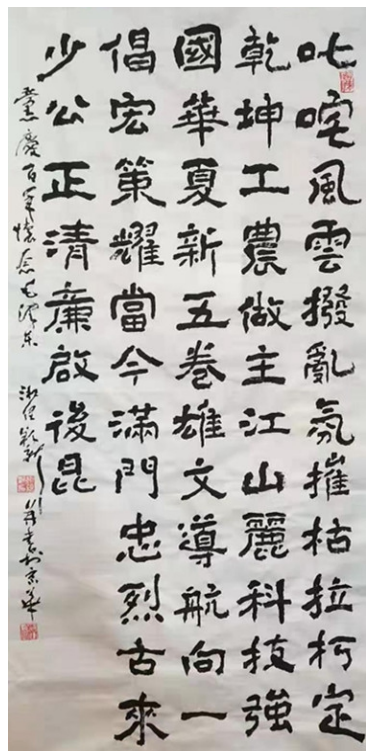 叱咤風雲撥亂氛摧枯拉朽定
乾坤工農做主江山麗科技強
國華夏新五卷雄文導航向一
倡宏策耀當今滿門忠烈古來
少公正清廉啟後昆
慶百年懷念毛澤东 書於京華